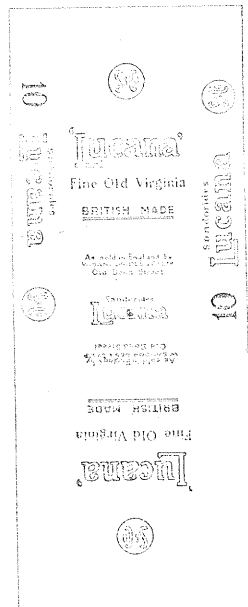 'Lucana'
Fine Old Virginia
BRITISH MADE
As sold in England by
Old Bond Street
Sandorides
Lucana
As sold in England by
Old Bond Street
BRITISH MADE
Fine Old Virginia
'Lucana'
10
Sandorides
Lucana
10
Sandorides
Lucana